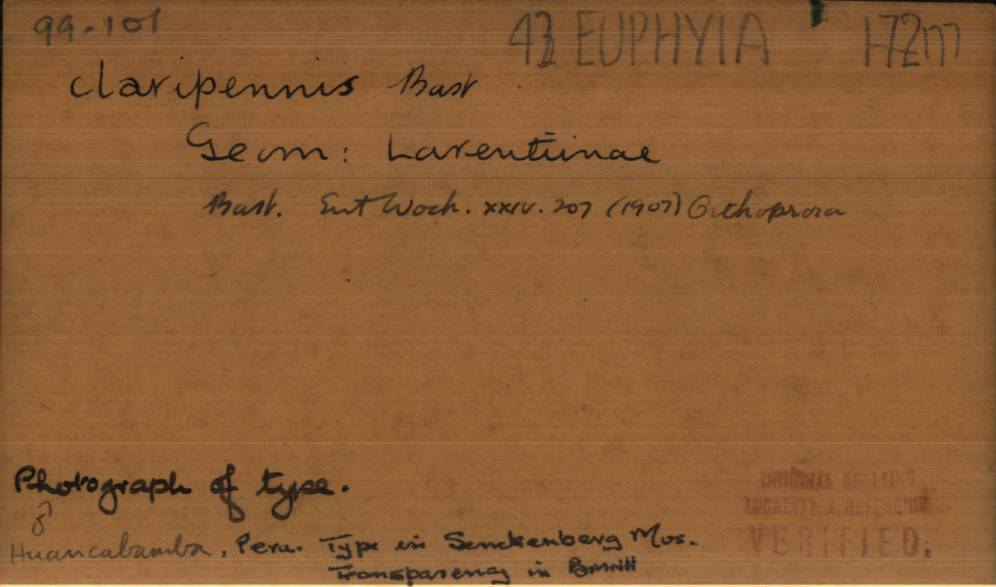 99.101 43 EUPHYIA 172m
claripennis Bast
Geom: Larentiinae
Bast. Ent Woch. xxiv. 207 (1907) Orthoprora
Photograph of type.
♂
Huancabamba, Peru. Type in Senckenberg Mus.
Transparency in BMNH
ORIGINAL SPELLING
LOCALITY & REFERENCE
VERIFIED.